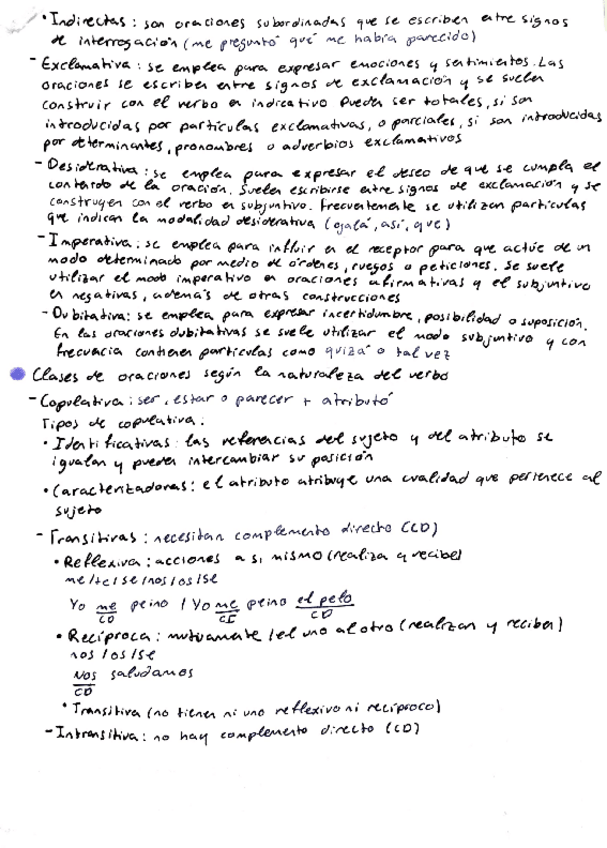 • Indirectas: son oraciones subordinadas que se escriben entre signos
de interrogación (me preguntó qué me había parecido)
- Exclamativa: se emplea para expresar emociones y sentimientos. Las
oraciones se escriben entre signos de exclamación y se suelen
construir con el verbo en indicativo pueden ser totales, si son
introducidas por partículas exclamativas, o parciales, si son introducidas
por determinantes, pronombres o adverbios exclamativos
- Desiderativa: se emplea para expresar el deseo de que se cumpla el
contenido de la oración. Suelen escribirse entre signos de exclamación y se
construyen con el verbo en subjuntivo. Frecuentemente se utilizan partículas
que indican la modalidad desiderativa (ojalá, así, que)
- Imperativa: se emplea para influir en el receptor para que actúe de un
modo determinado por medio de órdenes, ruegos o peticiones. Se suele
utilizar el modo imperativo en oraciones afirmativas y el subjuntivo
en negativas, además de otras construcciones
- Dubitativa: se emplea para expresar incertidumbre, posibilidad o suposición.
En las oraciones dubitativas se suele utilizar el modo subjuntivo y con
frecuencia contienen partículas como quizá o tal vez
Clases de oraciones según la naturaleza del verbo
- Copulativa: ser, estar o parecer + atributo
Tipos de copulativa:
• Identificativas: las referencias del sujeto y del atributo se
igualan y pueden intercambiar su posición
• Caracterizadoras: el atributo atribuye una cualidad que pertenece al
sujeto
- Transitivas: necesitan complemento directo (CD)
• Reflexiva: acciones a si mismo (realiza y recibe)
me/te/se/nos/os/se
Yo me peino / Yo me peino el pelo
CD CI CD
• Recíproca: mutuamente / el uno al otro (realizan y reciben)
nos/os/se
Nos saludamos
CD
• Transitiva (no tienen ni uno reflexivo ni recíproco)
- Intransitiva: no hay complemento directo (CD)